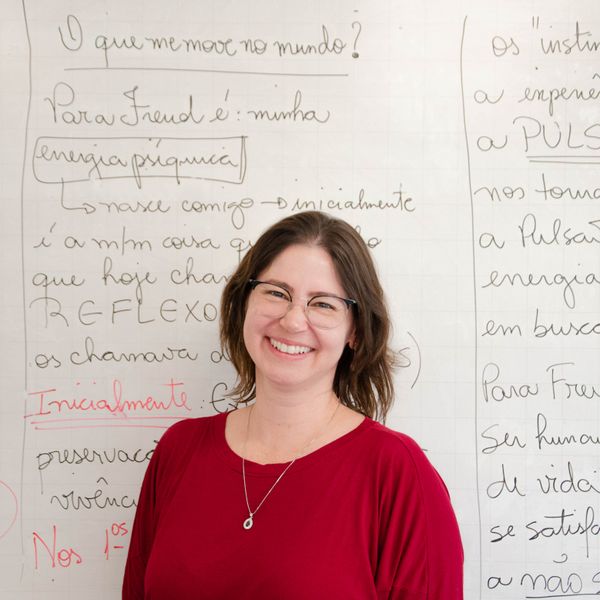 O que me move no mundo?
Para Freud é: minha
energia psíquica
↳ nasce comigo → inicialmente
é a m/m coisa qu
que hoje cham
REFLEXO
os chamava d s)
Inicialmente:
preservaçã
vivênc
Nos 1ºs
os "instin
a experiên
a PULS
nos torna
a Pulsã
energia
em busca
Para Freu
ser human
de vida
se satisfa
a não s